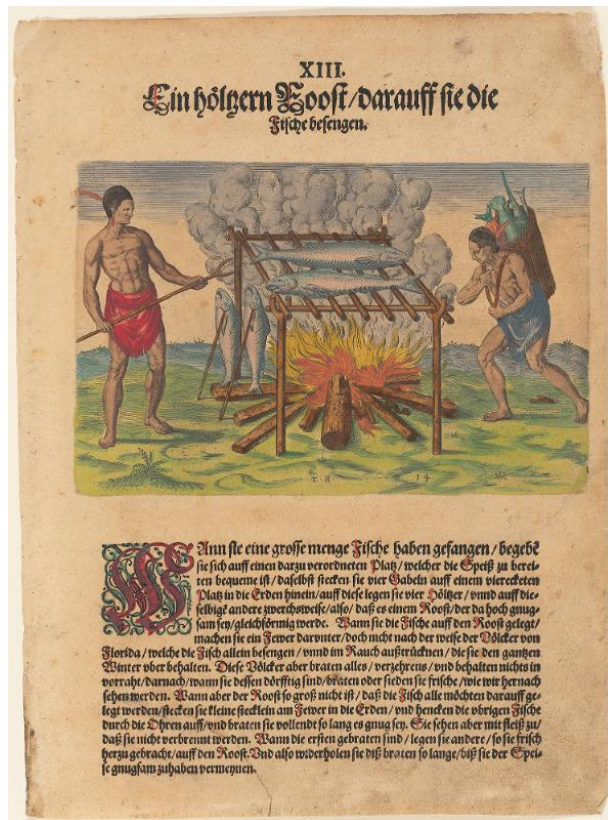 XIII.
Ein höltzern Roost/darauff sie die
Fische besengen.
T·B
14
WAnn sie eine grosse menge Fische haben gefangen/begebē
sie sich auff einen darzu verordneten Platz/welcher die Speiß zu berei-
ten bequeme ist/daselbst stecken sie vier Gabeln auff einem viereckten
Platz in die Erden hinein/auff diese legen sie vier Höltzer/vnnd auff die-
selbige andere zwerchsweise/also/daß es einem Roost/der da hoch gnug-
sam sey/gleichförmig werde. Wann sie die Fische auff den Roost gelegt/
machen sie ein Fewer darunter/doch nicht nach der weise der Völcker von
Florida/welche die Fisch allein besengen/vnnd im Rauch außtrücknen/die sie den gantzen
Winter vber behalten. Diese Völcker aber braten alles/verzehrens/vnd behalten nichts in
vorraht/darnach/wann sie dessen dörfftig sind/braten oder sieden sie frische/wie wir hernach
sehen werden. Wann aber der Roost so groß nicht ist/daß die Fisch alle möchten darauff ge-
legt werden/stecken sie kleine stecklein am Fewer in die Erden/vnd hencken die vbrigen Fische
durch die Ohren auff/vnd braten sie vollendt so lang es gnug sey. Sie sehen aber mit fleiß zu/
daß sie nicht verbrennt werden. Wann die ersten gebraten sind/legen sie andere/so sie frisch
herzu gebracht/auff den Roost. Vnd also widerholen sie diß braten so lange/biß sie der Spei-
se gnugsam zuhaben vermeynen.